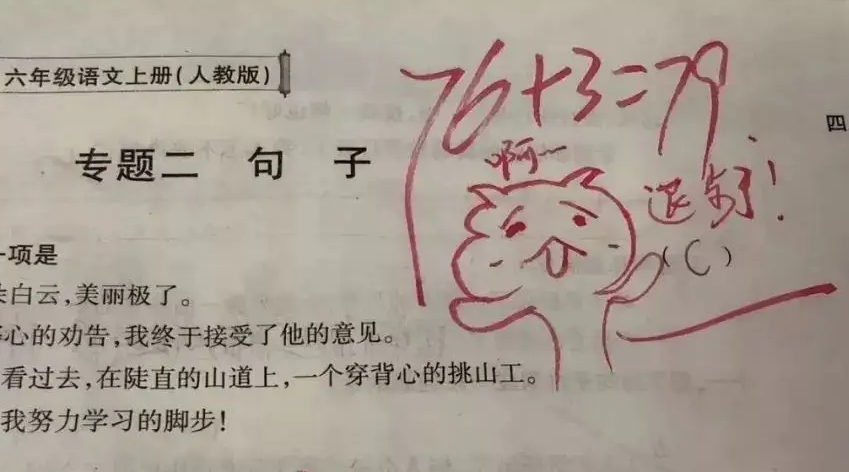 六年级语文上册(人教版)
76+3=79
四
专题二 句 子
啊~
退步了!
(C)
一项是
朵白云,美丽极了。
心的劝告,我终于接受了他的意见。
看过去,在陡直的山道上,一个穿背心的挑山工。
我努力学习的脚步!